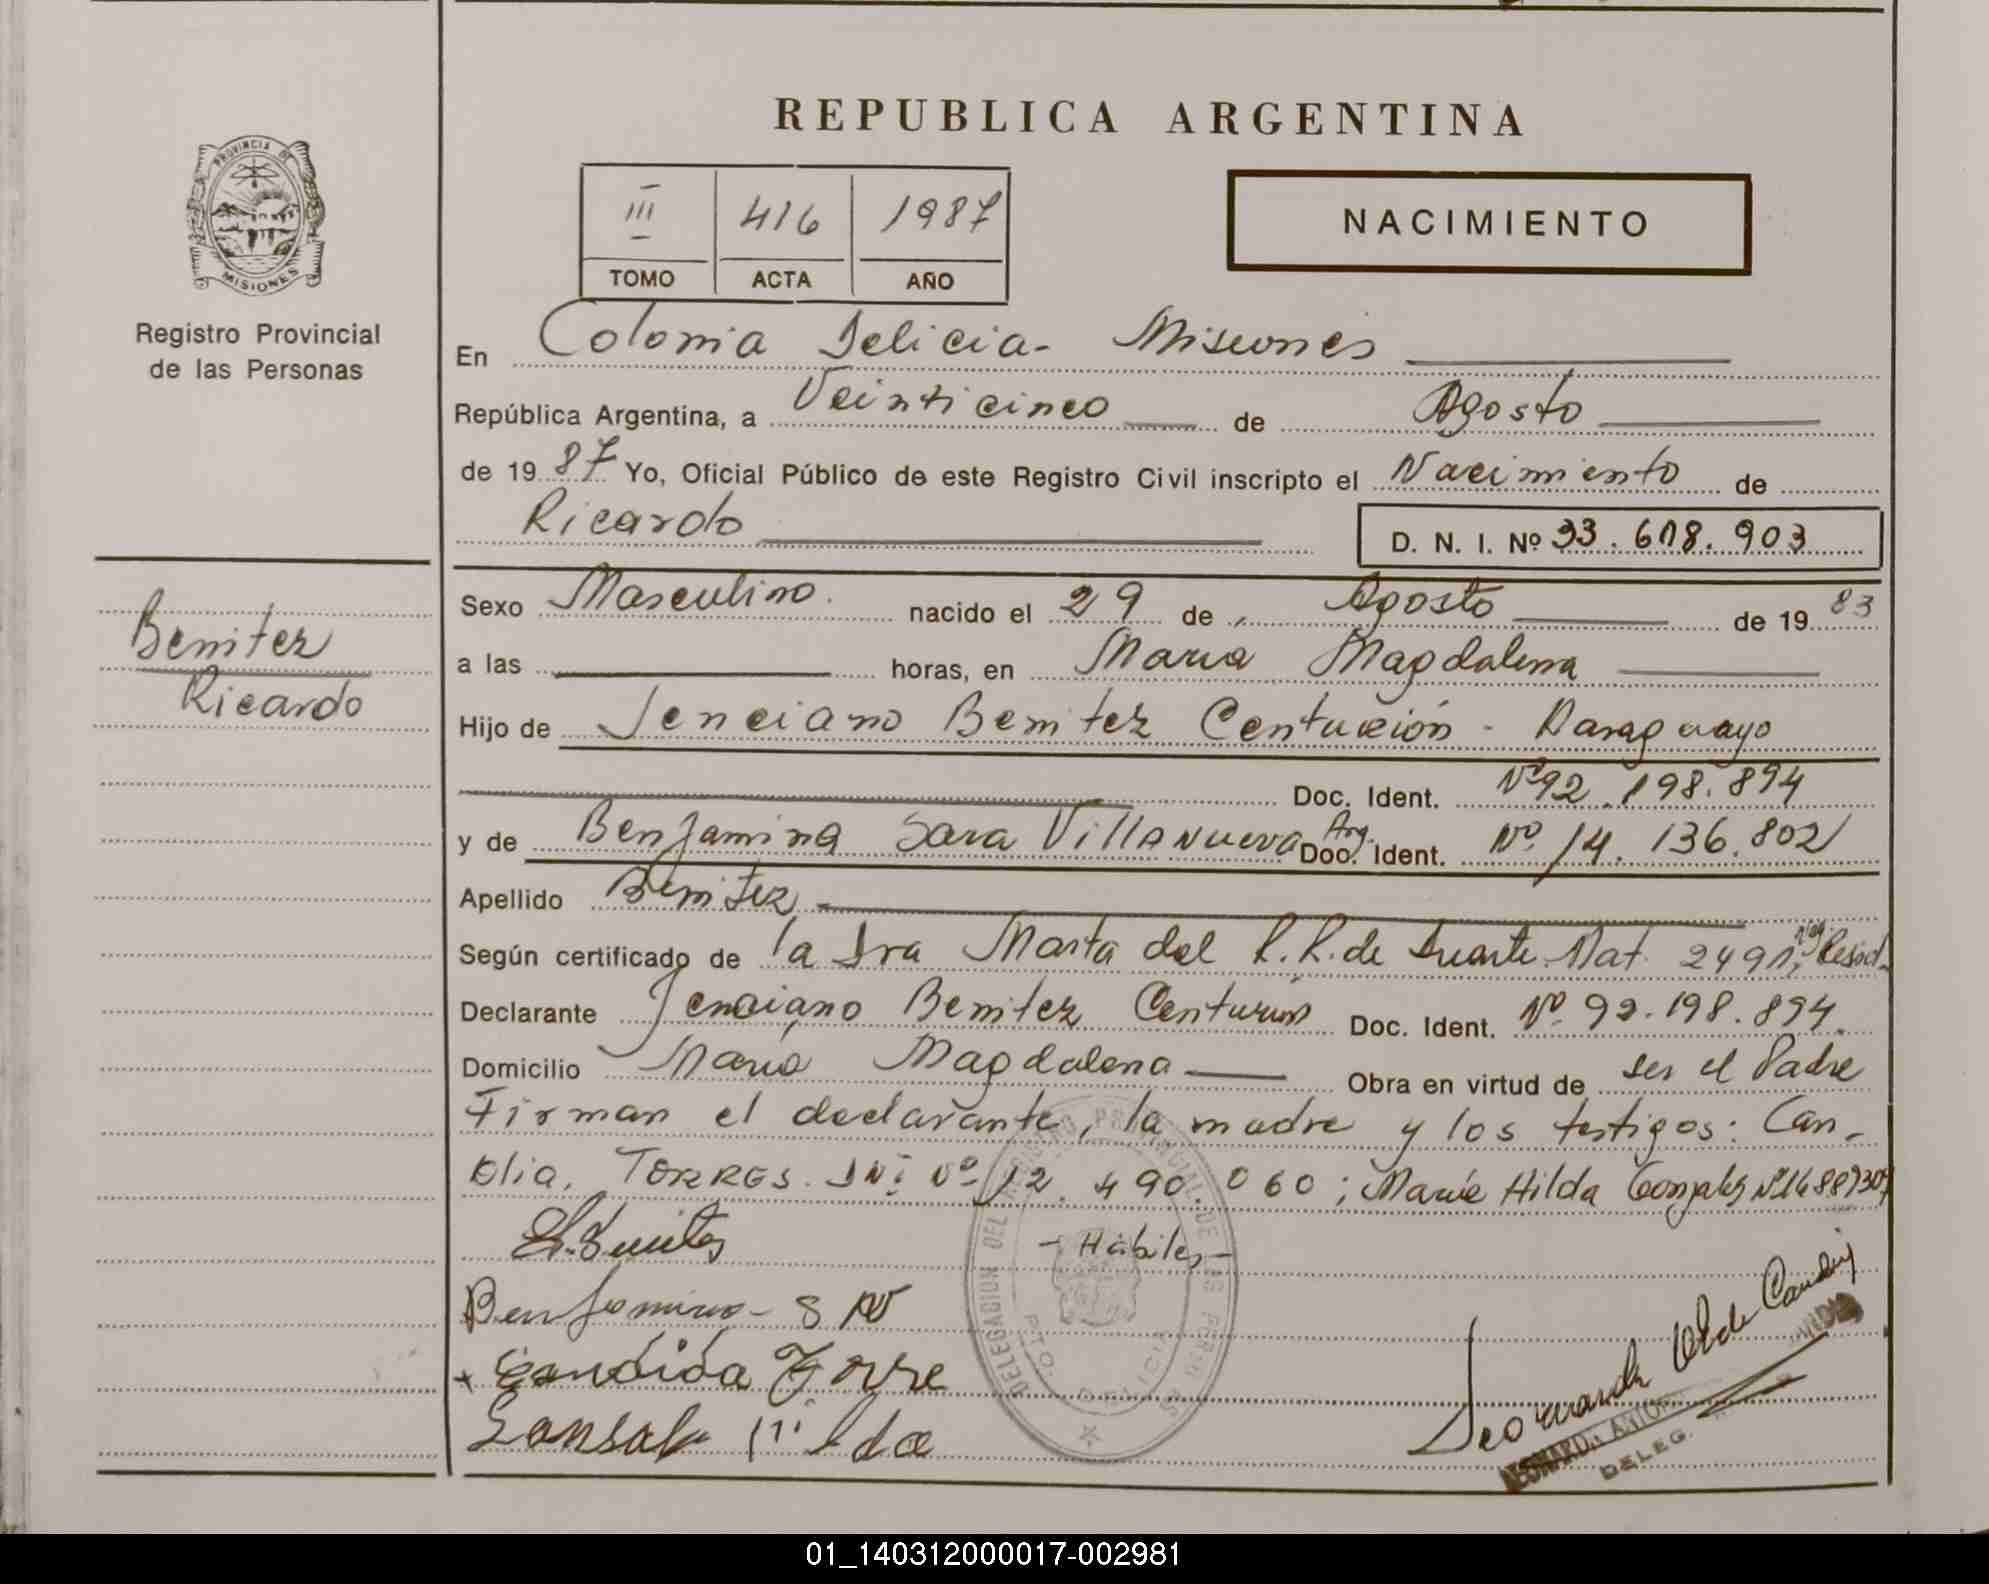 REPUBLICA ARGENTINA
PROVINCIA DE
MISIONES
Registro Provincial
de las Personas
III 416 1987
TOMO ACTA AÑO
NACIMIENTO
En Colonia Delicia - Misiones
República Argentina, a Veinticinco de Agosto
de 19 87 Yo, Oficial Público de este Registro Civil inscripto el Nacimiento de
Ricardo
D. N. I. Nº 33.618.903
Benitez
Ricardo
Sexo Masculino. nacido el 29 de Agosto de 19 83
a las horas, en Maria Magdalena
Hijo de Jenciano Benitez Centurión - Paraguayo
Doc. Ident. Nº 92.198.894
y de Benjamina Sara Villanueva Arg. Doc. Ident. Nº 14.136.802
Apellido Benitez
Según certificado de la Dra Marta del R. R. de Duarte Mat 2491
Declarante Jenciano Benitez Centurión Doc. Ident. Nº 92.198.894.
Domicilio Maria Magdalena Obra en virtud de ser el Padre
Firman el declarante, la madre y los testigos: Can-
dia, TORRES. DNI Nº 12.490.060; Maria Hilda Gonzalez
- Hábiles -
Benjamina S V
Candida Torre
Gonsale Hilda
DELEGACION DEL REGISTRO PROVINCIAL DE LAS PERSONAS
PTO. DELICIA
DELEG.
01_140312000017-002981